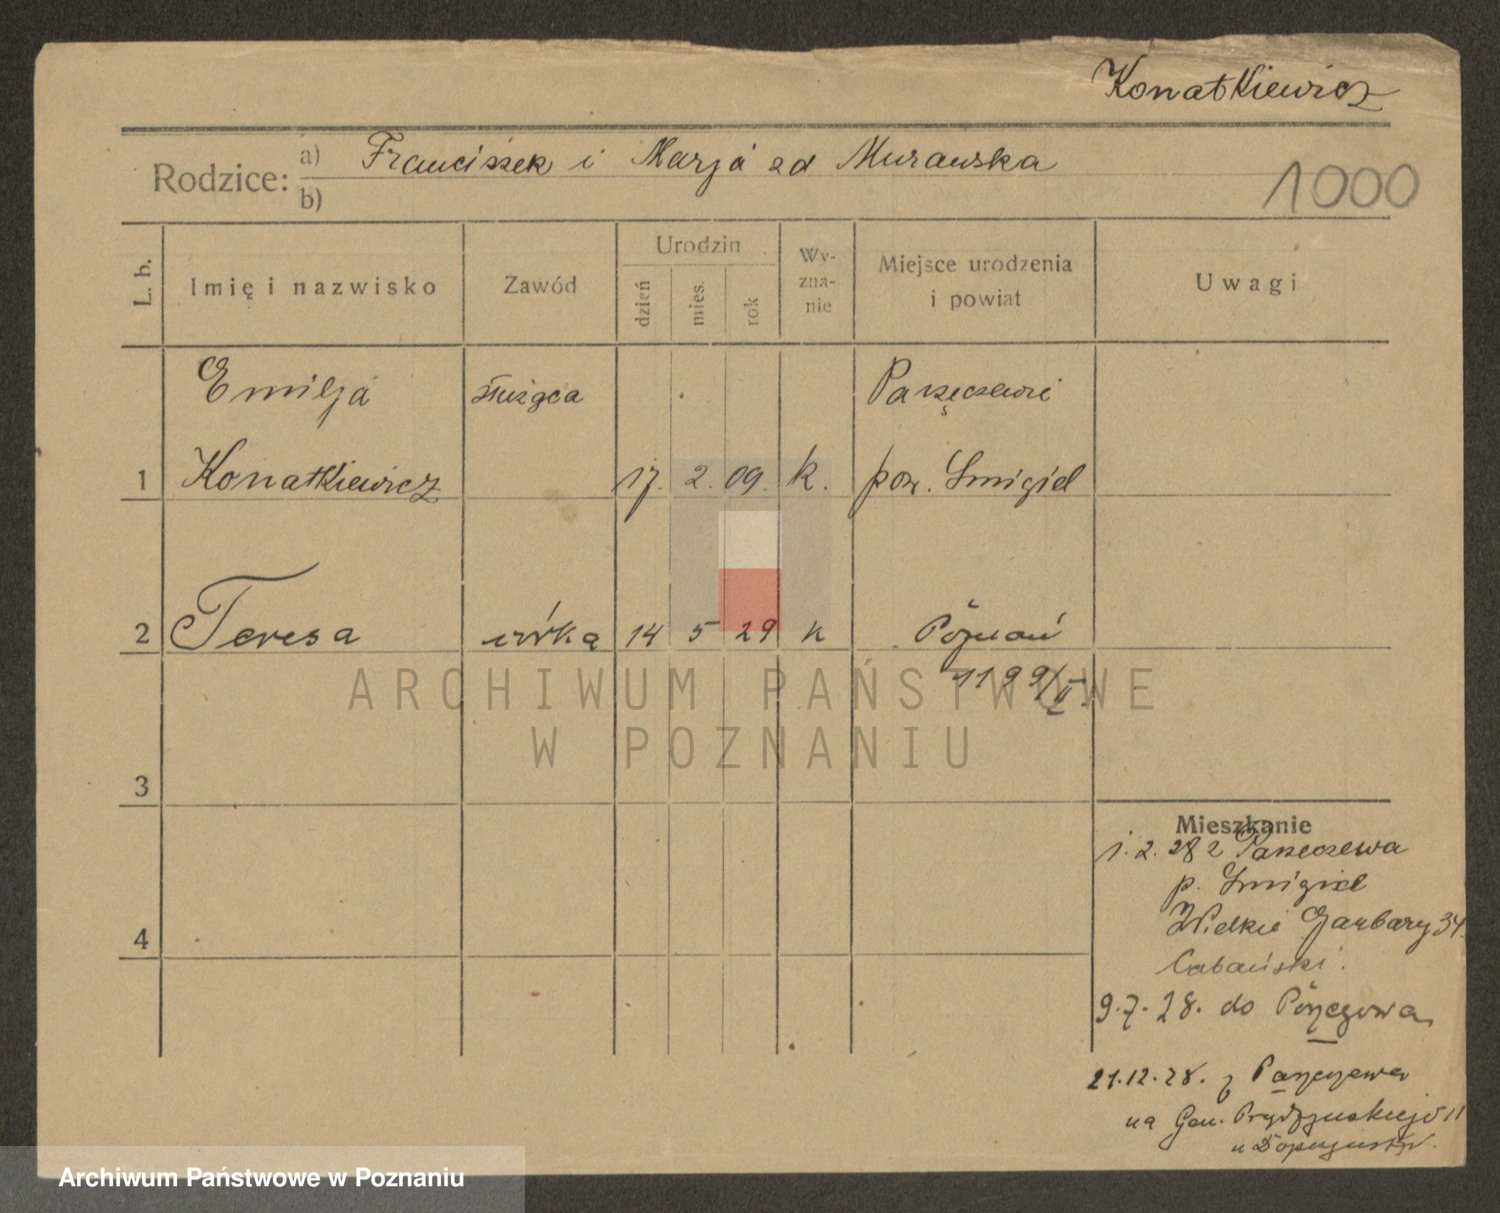 Konatkiewicz
Rodzice: a) Franciszek i Marja zd Murawska
b)
1000
L. b.
Imię i nazwisko
Zawód
Urodzin
dzień
mies.
rok
Wy-
zna-
nie
Miejsce urodzenia
i powiat
Uwagi
Emilja służąca Parzęczewie
1 Konatkiewicz 17. 2. 09. k. pow. Śmigiel
2 Teresa córka 14 5 29 k Poznań
1199/II.
ARCHIWUM PAŃSTWOWE
W POZNANIU
3
4
Mieszkanie
1. 2. 28 z Parzeczewa
p. Śmigiel
Wielkie Garbary 34.
Cabański.
9.7.28. do
21.12.28. z
na Gen. Prądzyńskiego 11
u
Archiwum Państwowe w Poznaniu